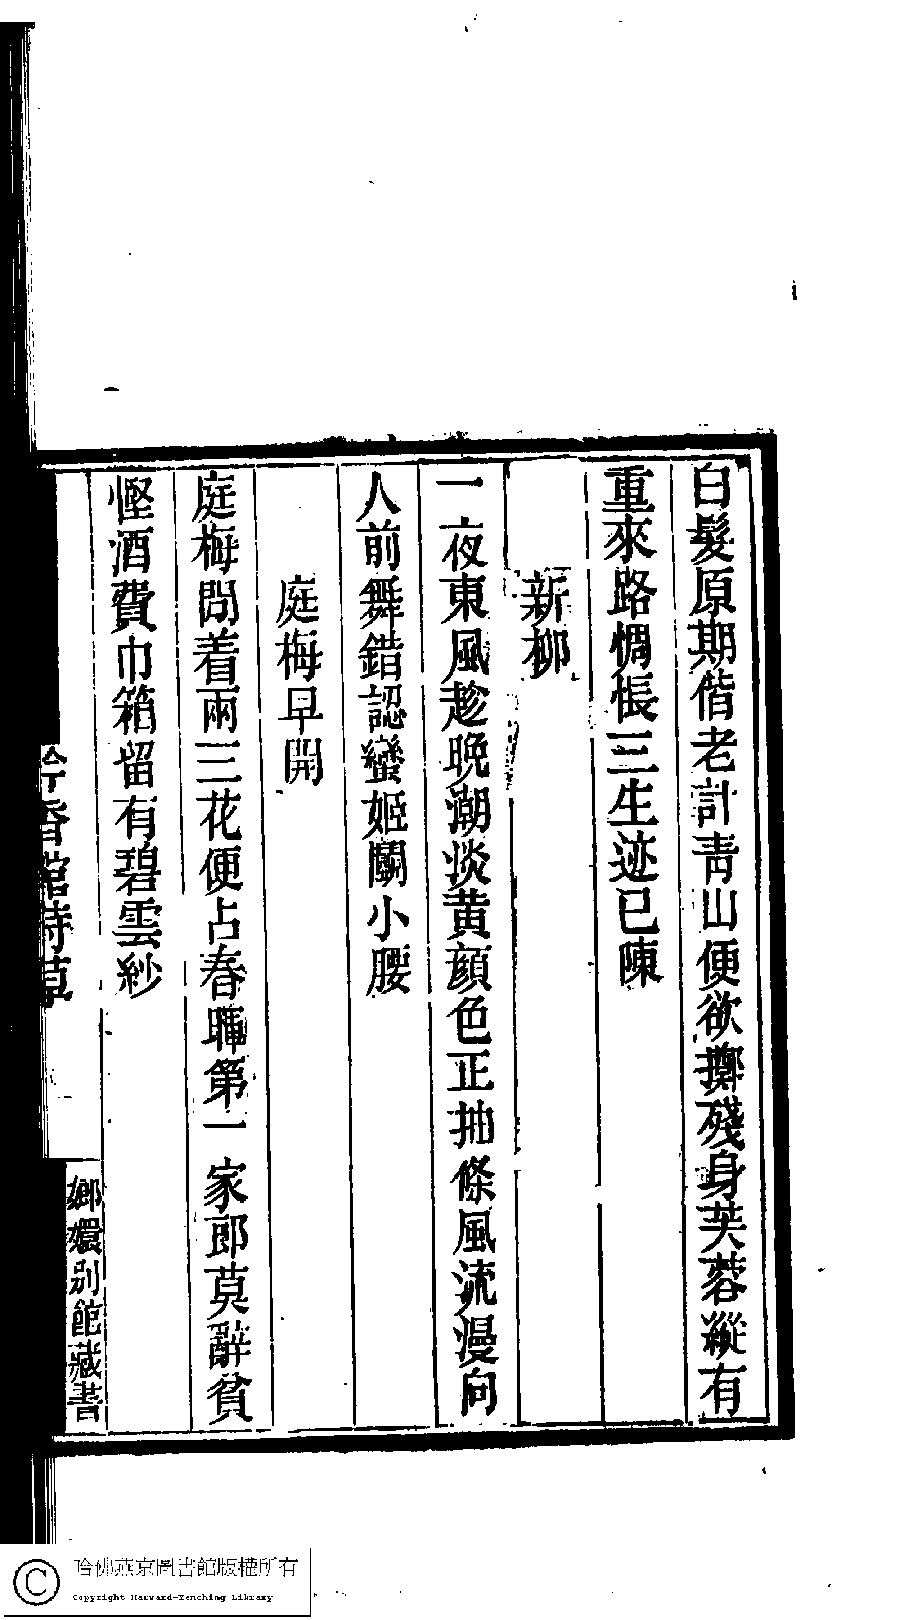 白髮原期偕老計靑山便欲擲殘身芙蓉縱有
重來路惆悵三生迹已陳
新柳
一夜東風趁晚潮淡黃顏色正抽條風流漫向
人前舞錯認蠻姬鬭小腰
庭梅早開
庭梅問着兩三花便占春聯第一家郎莫辭貧
慳酒費巾箱留有碧雲紗
吟香館詩草
嫏嬛別館藏書
哈佛燕京圖書館版權所有
Copyright Harvard-Yenching Library